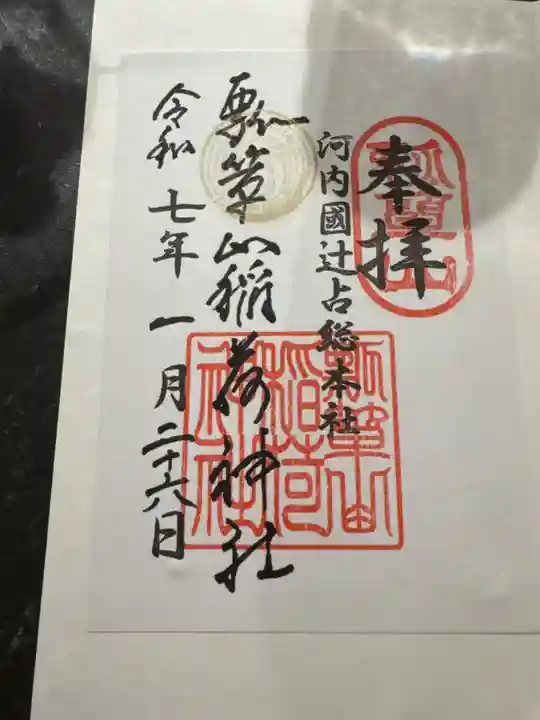 奉拝
河内國辻占総本社
瓢箪山稲荷神社
令和七年一月二十六日
瓢箪山
瓢箪山稲荷神社